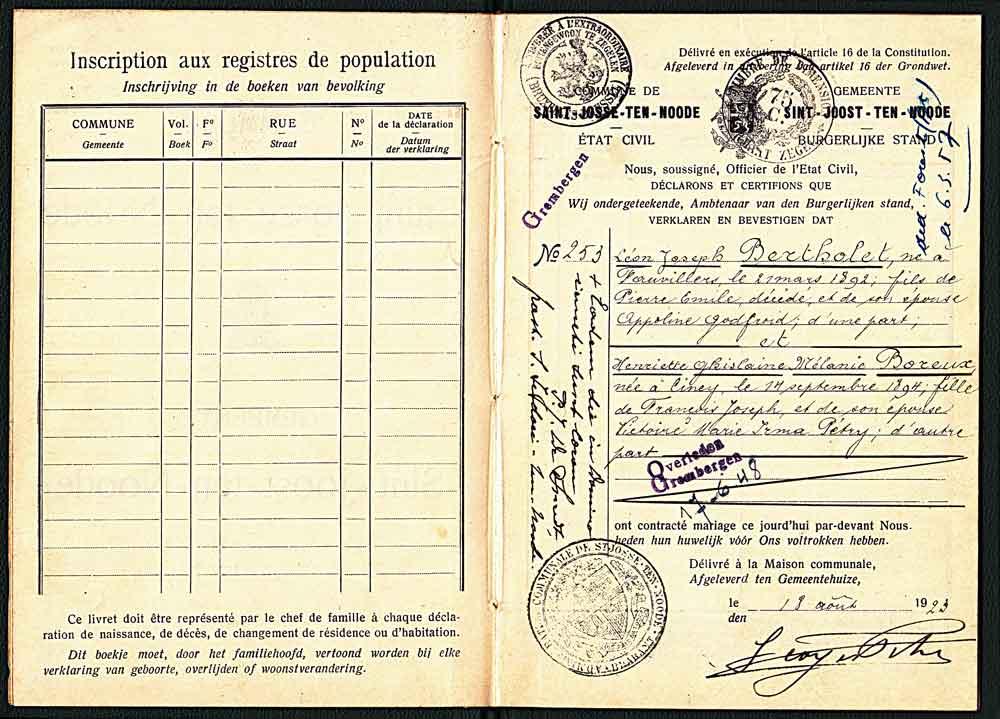 Inscription aux registres de population
Inschrijving in de boeken van bevolking
COMMUNE
Gemeente
Vol.
Boek
Fº
Fº
RUE
Straat
Nº
No
DATE
de la déclaration
Datum
der verklaring
Ce livret doit être représenté par le chef de famille à chaque décla-
ration de naissance, de décès, de changement de résidence ou d'habitation.
Dit boekje moet, door het familiehoofd, vertoond worden bij elke
verklaring van geboorte, overlijden of woonstverandering.
Délivré en exécution de l'article 16 de la Constitution.
Afgeleverd in van artikel 16 der Grondwet.
COMMUNE DE
SAINT-JOSSE-TEN-NOODE
ÉTAT CIVIL
GEMEENTE
SINT-JOOST-TEN-NOODE
BURGERLIJKE STAND
75
C.
Grembergen
Nous, soussigné, Officier de l'Etat Civil,
DÉCLARONS ET CERTIFIONS QUE
Wij ondergeteekende, Ambtenaar van den Burgerlijken stand,
VERKLAREN EN BEVESTIGEN DAT
le 6.3.57
Nº 253
Léon Joseph Bertholet, né à
Fauvillers, le 21 mars 1892; fils de
Pierre Emile, décédé, et de son épouse
Appoline Godfroid; d'une part;
et
Henriette Ghislaine Mélanie Boreux,
née à Ciney, le 17 septembre 1894; fille
de François Joseph, et de son épouse
Victoire Marie Irma Pétry; d'autre
part
Overleden
Grembergen
6-48
+ Eadem die in
past. S. Jos
ont contracté mariage ce jourd'hui par-devant Nous.
heden hun huwelijk vóór Ons voltrokken hebben.
Délivré à la Maison communale,
Afgeleverd ten Gemeentehuize,
le
den
13 août 1923
COMMUNALE DE ST JOSSE-TEN-NOODE